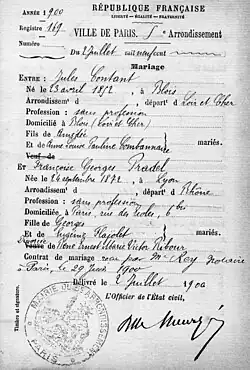 ANNÉE : 1900
RÉPUBLIQUE FRANÇAISE
LIBERTÉ – ÉGALITÉ – FRATERNITÉ
Registre 169
VILLE DE PARIS. 5e Arrondissement
Numéro
Du 2 Juillet mil neuf cent
Mariage
ENTRE : Jules Contant
Né le 23 avril 1872, à Blois
Arrondissemt d , départt d Loir et Cher
Profession : sans profession
Domicilié à Blois (Loir et Cher)
Fils de
Et de Anne Pauline } mariés.
Veuf de
ET Françoise Georges Pradel
Née le 24 septembre 1872, à Lyon
Arrondissemt d , départt d Rhône
Profession : sans profession
Domiciliée, à Paris, rue des Ecoles, 6 bis
Fille de Georges
Et de Eugénie Hajolet } mariés.
Veuve de René Ernest Marie Victor Ribour
Contrat de mariage reçu par Me Roy notaire
à Paris, le 29 Juin 1900
Délivré le 2 Juillet 1900
L'Officier de l'État civil,
Timbre et signature.
MAIRIE DU 5e ARRONDISSEMENT
PARIS